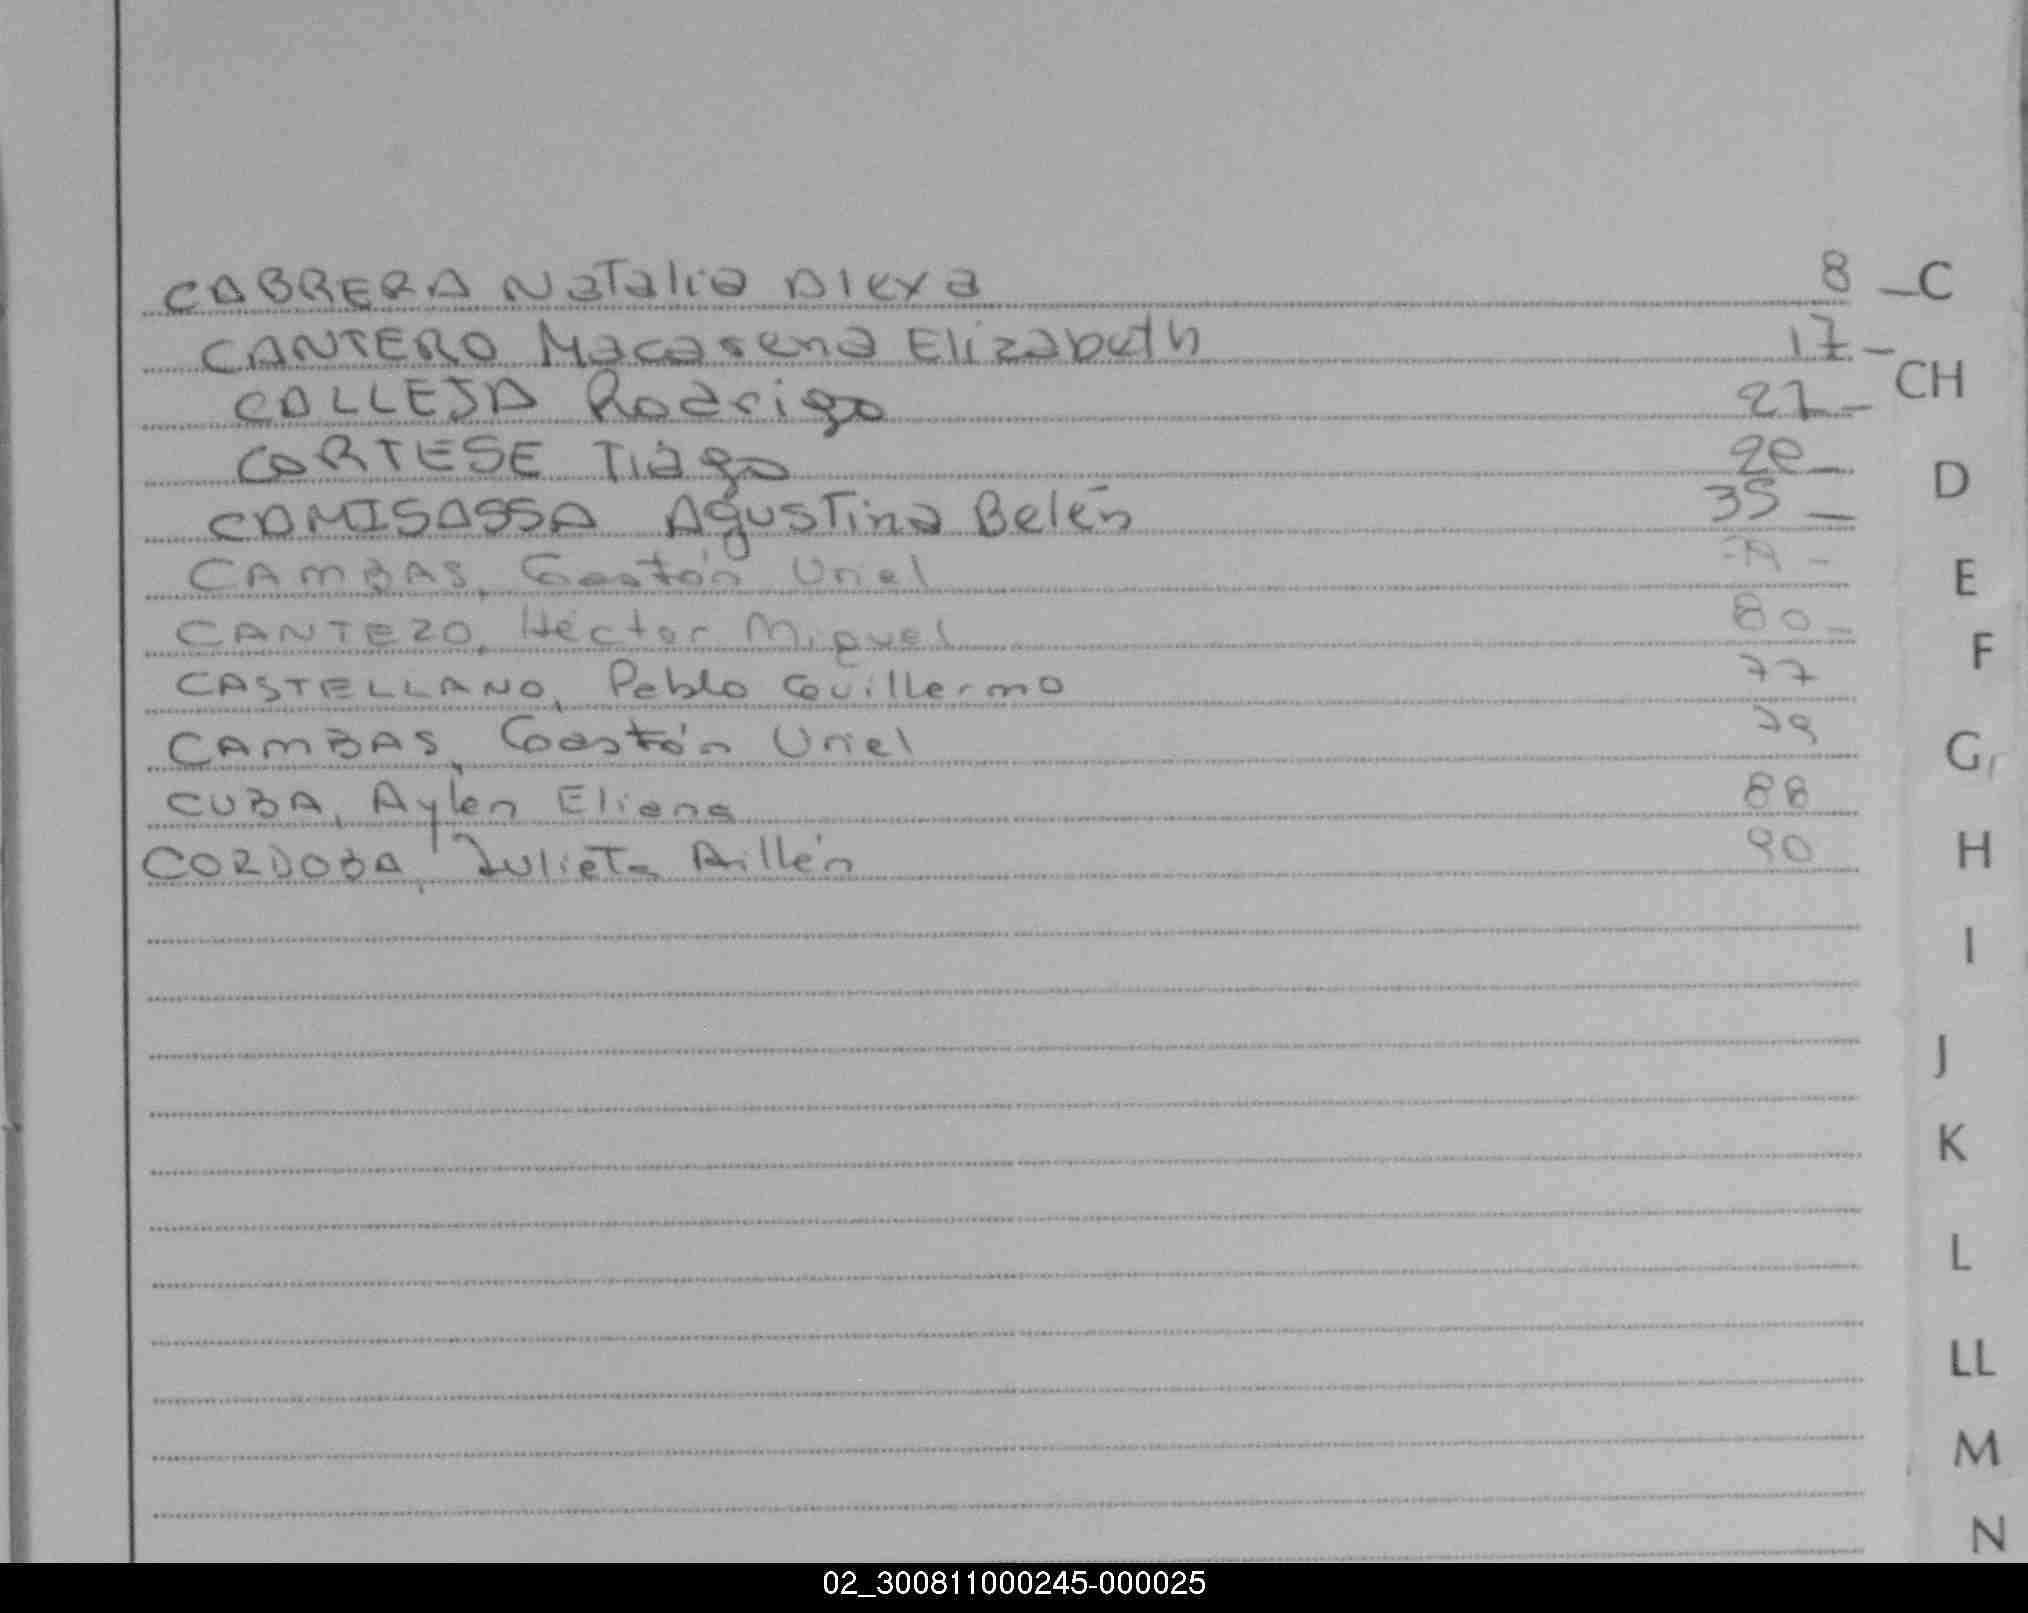 CABRERA Natalia Alexa 8 _ C
CANTERO Macarena Elizabeth 17 _
CH
CALLEJA Rodrigo 21 _
CORTESE Tiago 20 _
D
CAMISASSA Agustina Belén 35 _
CAMBAS, Gastón Uriel
E
CANTERO, Héctor Miguel 80 _
F
CASTELLANO, Pablo Guillermo 77
CAMBAS, Gastón Uriel 79
G
CUBA, Aylen Eliana 88
CORDOBA, Julieta Aillén 90
H
I
J
K
L
LL
M
N
02_300811000245-000025